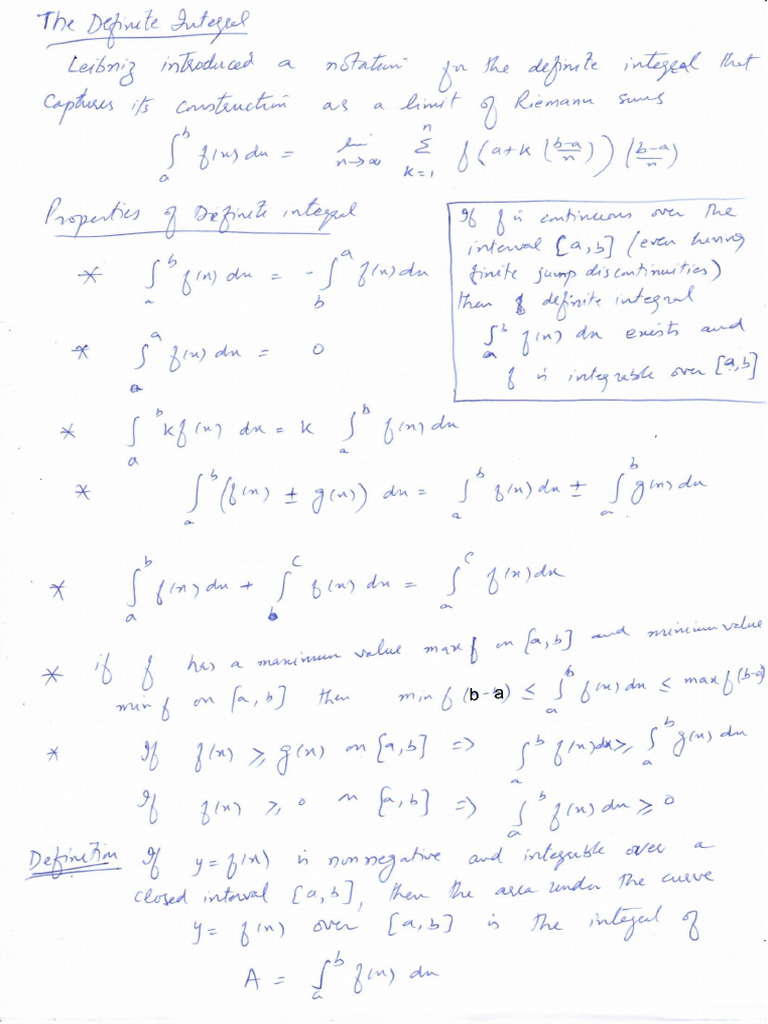 The Definite Integral
Leibniz introduced a notation for the definite integral that
captures its construction as a limit of Riemann sums
∫_a^b f(x) dx = lim_{n→∞} Σ_{k=1}^n f(a+k((b-a)/n)) ((b-a)/n)
Properties of Definite integral
* ∫_a^b f(x) dx = - ∫_b^a f(x) dx
* ∫_a^a f(x) dx = 0
If f is continuous over the
interval [a,b] (even having
finite jump discontinuities)
then definite integral
∫_a^b f(x) dx exists and
f is integrable over [a,b]
* ∫_a^b k f(x) dx = k ∫_a^b f(x) dx
* ∫_a^b (f(x) ± g(x)) dx = ∫_a^b f(x) dx ± ∫_a^b g(x) dx
* ∫_a^b f(x) dx + ∫_b^c f(x) dx = ∫_a^c f(x) dx
* if f has a maximum value max f on [a,b] and minimum value
min f on [a,b] then min f (b-a) ≤ ∫_a^b f(x) dx ≤ max f (b-a)
* If f(x) ≥ g(x) on [a,b] => ∫_a^b f(x) dx ≥ ∫_a^b g(x) dx
If f(x) ≥ 0 on [a,b] => ∫_a^b f(x) dx ≥ 0
Definition If y=f(x) is nonnegative and integrable over a
closed interval [a,b], then the area under the curve
y = f(x) over [a,b] is the integral of
A = ∫_a^b f(x) dx